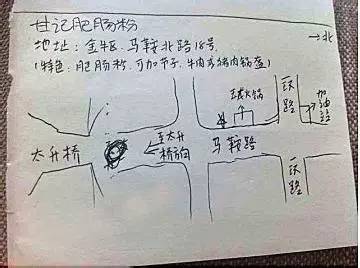 甘记肥肠粉
地址：金牛、马鞍北路18号
（特色：肥肠粉，可加节子、牛肉或猪肉锅盔）
→北
玉成火锅
一环路
加油站
太升桥
至太升桥方向
马鞍路
一环路